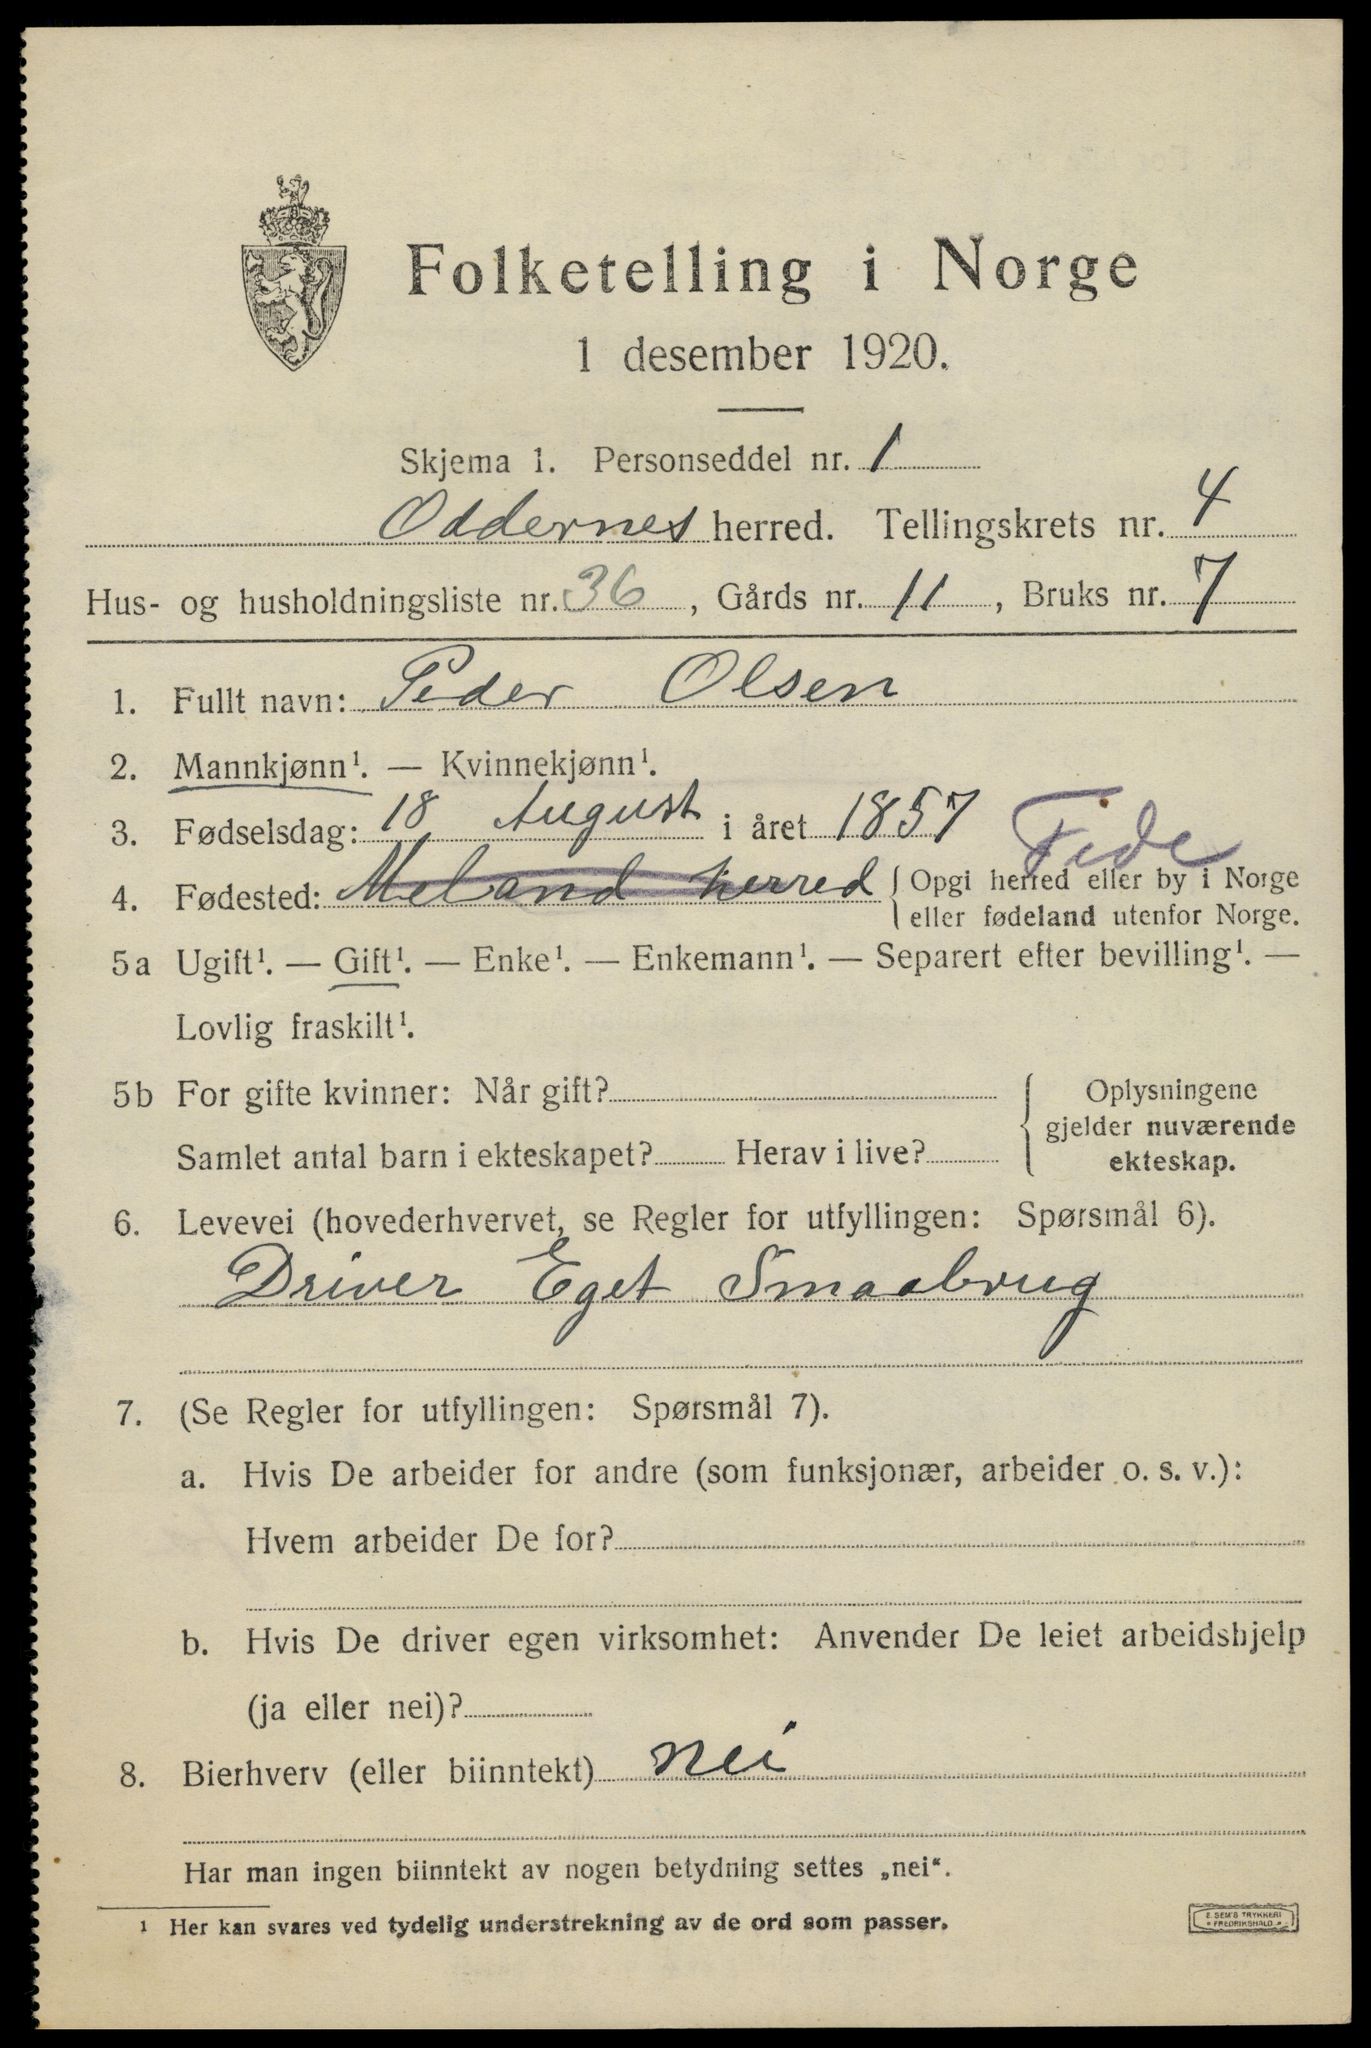 Folketelling i Norge
1 desember 1920.
Skjema 1. Personseddel nr. 1
Oddernes herred. Tellingskrets nr. 4
Hus- og husholdningsliste nr. 36, Gårds nr. 11, Bruks nr. 7
1. Fullt navn: Peder Olsen
2. Mannkjønn¹. — Kvinnekjønn¹.
3. Fødselsdag: 18 August i året 1857
Fide
4. Fødested: Meland herred { Opgi herred eller by i Norge
eller fødeland utenfor Norge.
5a Ugift¹. — Gift¹. — Enke¹. — Enkemann¹. — Separert efter bevilling¹. —
Lovlig fraskilt¹.
5b For gifte kvinner: Når gift?
Samlet antal barn i ekteskapet? Herav i live?
{ Oplysningene
gjelder nuværende
ekteskap.
6. Levevei (hovederhvervet, se Regler for utfyllingen: Spørsmål 6).
Driver Eget Smaabrug
7. (Se Regler for utfyllingen: Spørsmål 7).
a. Hvis De arbeider for andre (som funksjonær, arbeider o. s. v.):
Hvem arbeider De for?
b. Hvis De driver egen virksomhet: Anvender De leiet arbeidshjelp
(ja eller nei)?
8. Bierhverv (eller biinntekt) nei
Har man ingen biinntekt av nogen betydning settes „nei“.
¹ Her kan svares ved tydelig understrekning av de ord som passer.
E. SEM'S TRYKKERI
FREDRIKSHALD